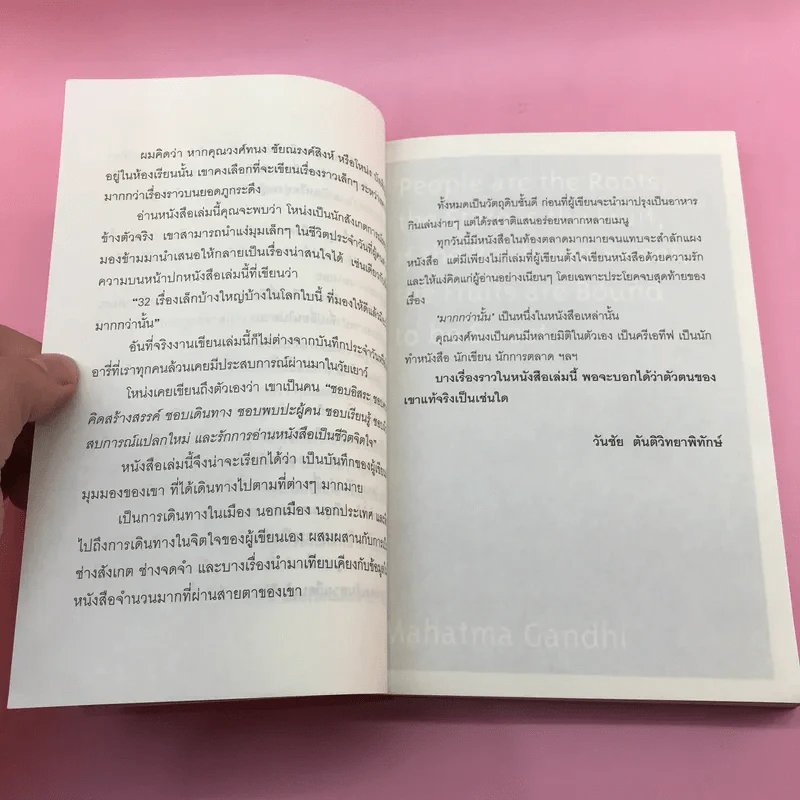 ผมคิดว่า หากคุณวงศ์ทนง ชัยณรงค์สิงห์ หรือโหน่ง
อยู่ในห้องเรียนนั้น เขาคงเลือกที่จะเขียนเรื่องราวเล็กๆ
มากกว่าเรื่องราวบนยอดภูกระดึง
อ่านหนังสือเล่มนี้คุณจะพบว่า โหน่งเป็นนักสังเกตการณ์
ข้างตัวจริง เขาสามารถนำแง่มุมเล็กๆ ในชีวิตประจำวันที่ผู้คน
มองข้ามมานำเสนอให้กลายเป็นเรื่องน่าสนใจได้
ความบนหน้าปกหนังสือเล่มนี้ที่เขียนว่า
“32 เรื่องเล็กบ้างใหญ่บ้างในโลกใบนี้ ที่มองให้ดีแล้ว
มากกว่านั้น”
อันที่จริงงานเขียนเล่มนี้ก็ไม่ต่างจากบันทึกประจำวัน
อารี่ที่เราทุกคนล้วนเคยมีประสบการณ์ผ่านมาในวัยเยาว์
โหน่งเคยเขียนถึงตัวเองว่า เขาเป็นคน “ชอบอิสระ
คิดสร้างสรรค์ ชอบเดินทาง ชอบพบปะผู้คน ชอบเรียนรู้
สบการณ์แปลกใหม่ และรักการอ่านหนังสือเป็นชีวิตจิตใจ”
หนังสือเล่มนี้จึงน่าจะเรียกได้ว่า เป็นบันทึกของผู้เขียน
มุมมองของเขา ที่ได้เดินทางไปตามที่ต่างๆ มากมาย
เป็นการเดินทางในเมือง นอกเมือง นอกประเทศ
ไปถึงการเดินทางในจิตใจของผู้เขียนเอง ผสมผสานกับการ
ช่างสังเกต ช่างจดจำ และบางเรื่องนำมาเทียบเคียงกับข้อมูล
หนังสือจำนวนมากที่ผ่านสายตาของเขา
ทั้งหมดเป็นวัตถุดิบชั้นดี ก่อนที่ผู้เขียนจะนำมาปรุงเป็นอาหาร
กินเล่นง่ายๆ แต่ได้รสชาติแสนอร่อยหลากหลายเมนู
ทุกวันนี้มีหนังสือในท้องตลาดมากมายจนแทบจะสำลักแผง
หนังสือ แต่มีเพียงไม่กี่เล่มที่ผู้เขียนตั้งใจเขียนหนังสือด้วยความรัก
และให้แง่คิดแก่ผู้อ่านอย่างเนียนๆ โดยเฉพาะประโยคจบสุดท้ายของ
เรื่อง
‘มากกว่านั้น’ เป็นหนึ่งในหนังสือเหล่านั้น
คุณวงศ์ทนงเป็นคนมีหลายมิติในตัวเอง เป็นครีเอทีฟ เป็นนัก
ทำหนังสือ นักเขียน นักการตลาด ฯลฯ
บางเรื่องราวในหนังสือเล่มนี้ พอจะบอกได้ว่าตัวตนของ
เขาแท้จริงเป็นเช่นใด
วันชัย ตันติวิทยาพิทักษ์
People are the Roots
are Bound
Mahatma Gandhi